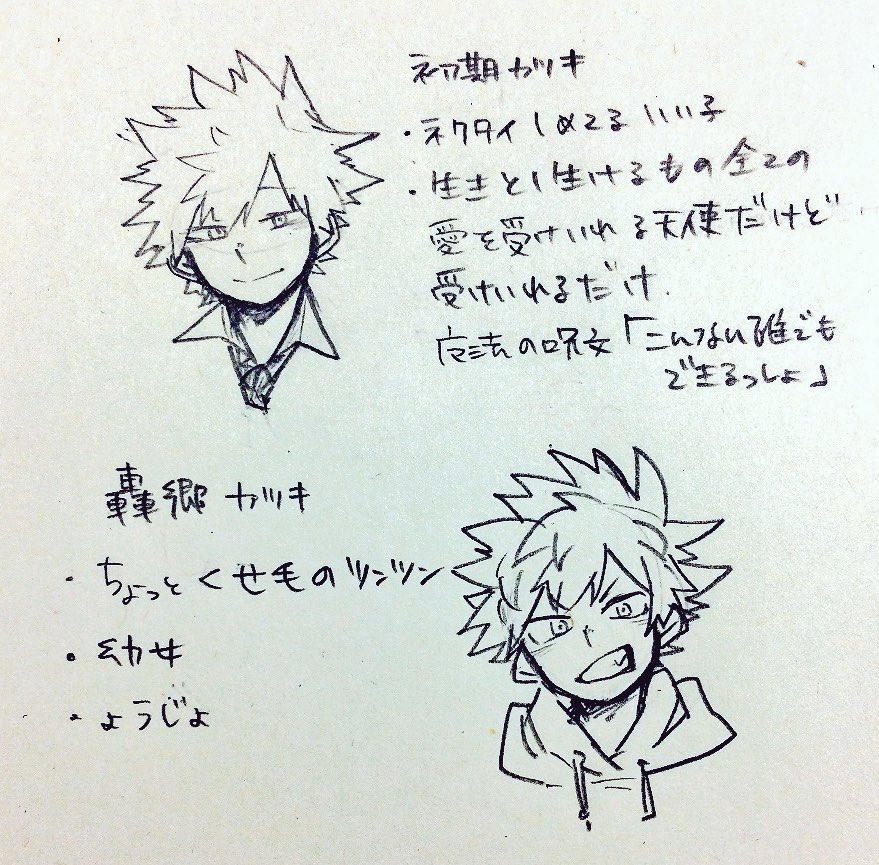 初期カツキ
・ネクタイしめてるいい子
・生きとし生けるもの全ての
愛を受けいれる天使だけど
受けいれるだけ.
魔法の呪文「こんなん誰でも
できるっしょ」
轟郷カツキ
・ちょっとくせ毛のツンツン
・幼女
・ようじょ